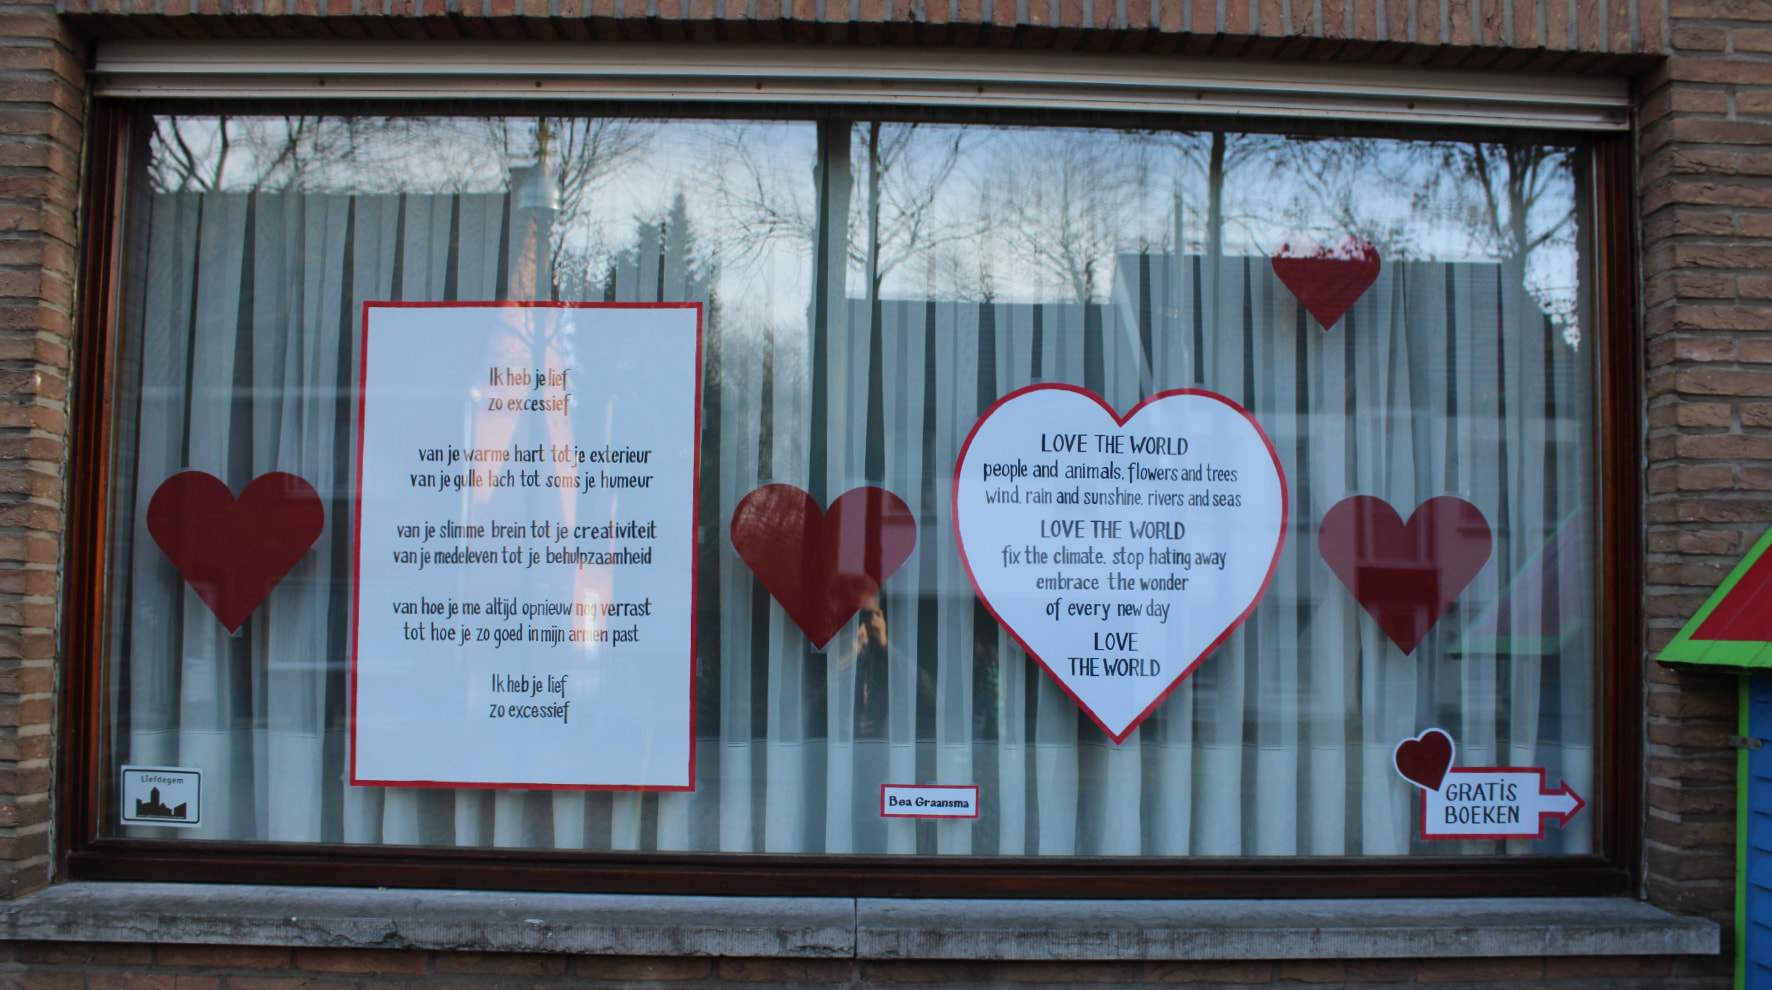 Ik heb je lief
zo excessief
van je warme hart tot je exterieur
van je gulle lach tot soms je humeur
van je slimme brein tot je creativiteit
van je medeleven tot je behulpzaamheid
van hoe je me altijd opnieuw nog verrast
tot hoe je zo goed in mijn armen past
Ik heb je lief
zo excessief
LOVE THE WORLD
people and animals, flowers and trees
wind, rain and sunshine, rivers and seas
LOVE THE WORLD
fix the climate, stop hating away
embrace the wonder
of every new day
LOVE
THE WORLD
Liefdegem
Bea Graansma
GRATIS
BOEKEN